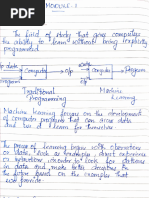 MODULE-1
The field of study that gives computers
the ability to "learn" without being explicitly
programmed.
data
Computer
o/p
Data
Computer
Program
Traditional
Programming
Machine
Learning
Machine Learning focuses on the development
of computer programs that can access data
and use it learn for themselves
The process of learning begins with
data, such as
or instruction, in order to look for
in data and make better decisions in
the future based on the examples that
we provide